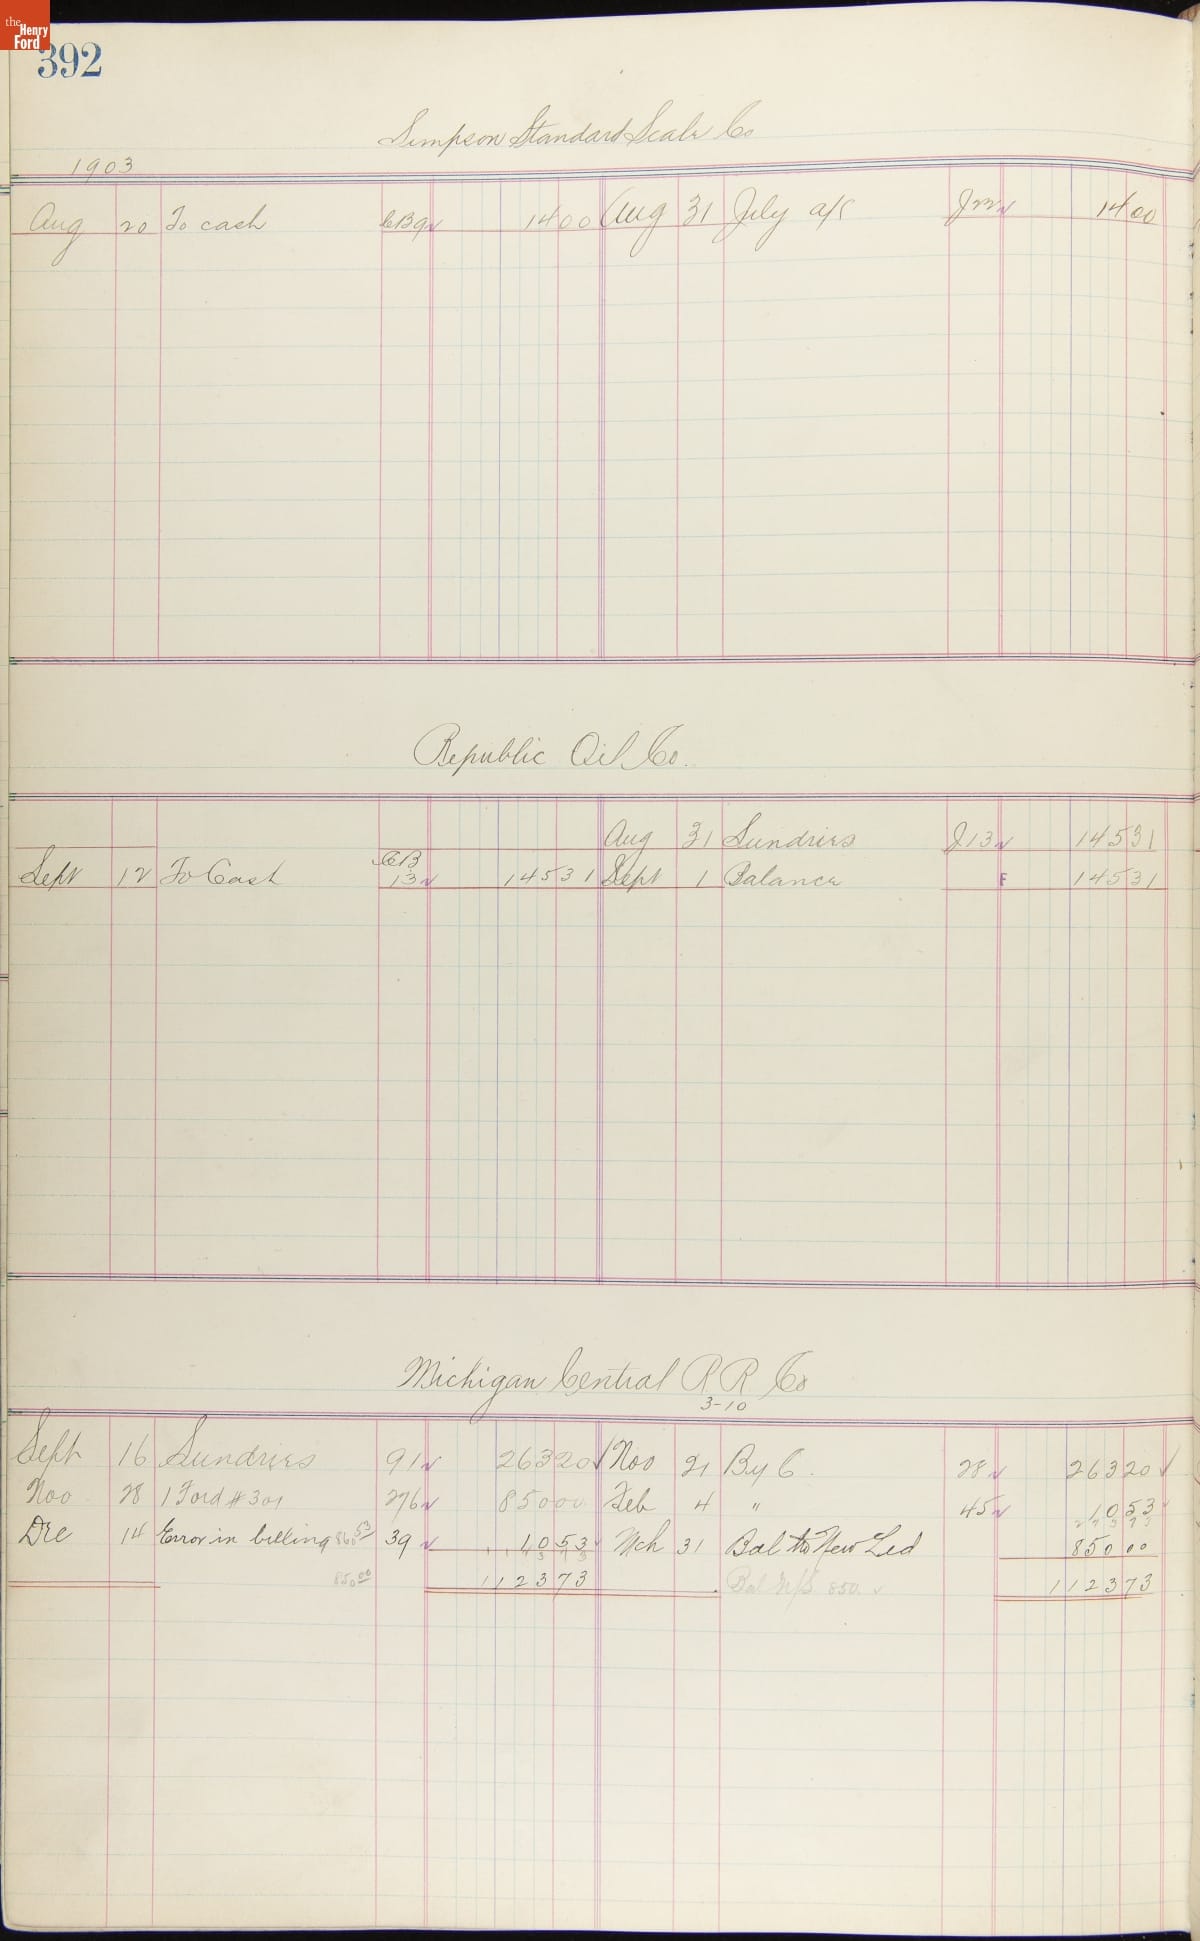 the Henry Ford
392
Simpson Standard Scale Co
1903
Aug 20 To cash CB9 14 00 Aug 31 July a/c 14 00
Republic Oil Co.
Aug 31 Sundries J13 145 31
Sept 12 To Cash CB 13 145 31 Sept 1 Balance F 145 31
Michigan Central R R Co
3-10
Sept 16 Sundries 91 263 20 Nov 21 By C. 28 263 20
Nov 28 1 Ford # 301 276 850 00 Feb 4 " 45 10 53
Dec 14 Error in billing 860 53 39 10 53 Mch 31 Bal to New Led 850 00
850 00 1123 73 Bal 850. 1123 73